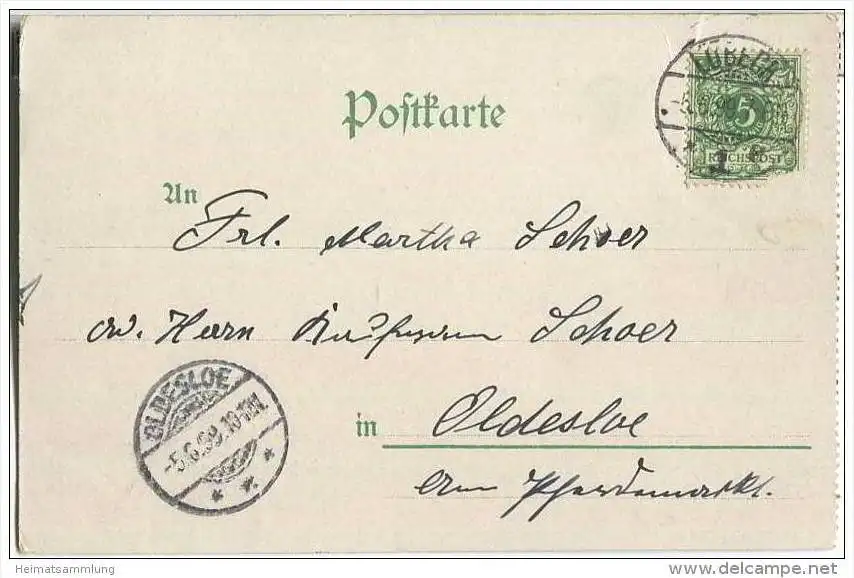 Postkarte
LÜBECK
-5.6.99
5
REICHSPOST
1
An
Frl. Martha Schoer
Herrn Kaufmann Schoer
OLDESLOE
-5.6.99.
in Oldesloe
am Pferdemarkt.
Heimatsammlung
www.delcampe.net